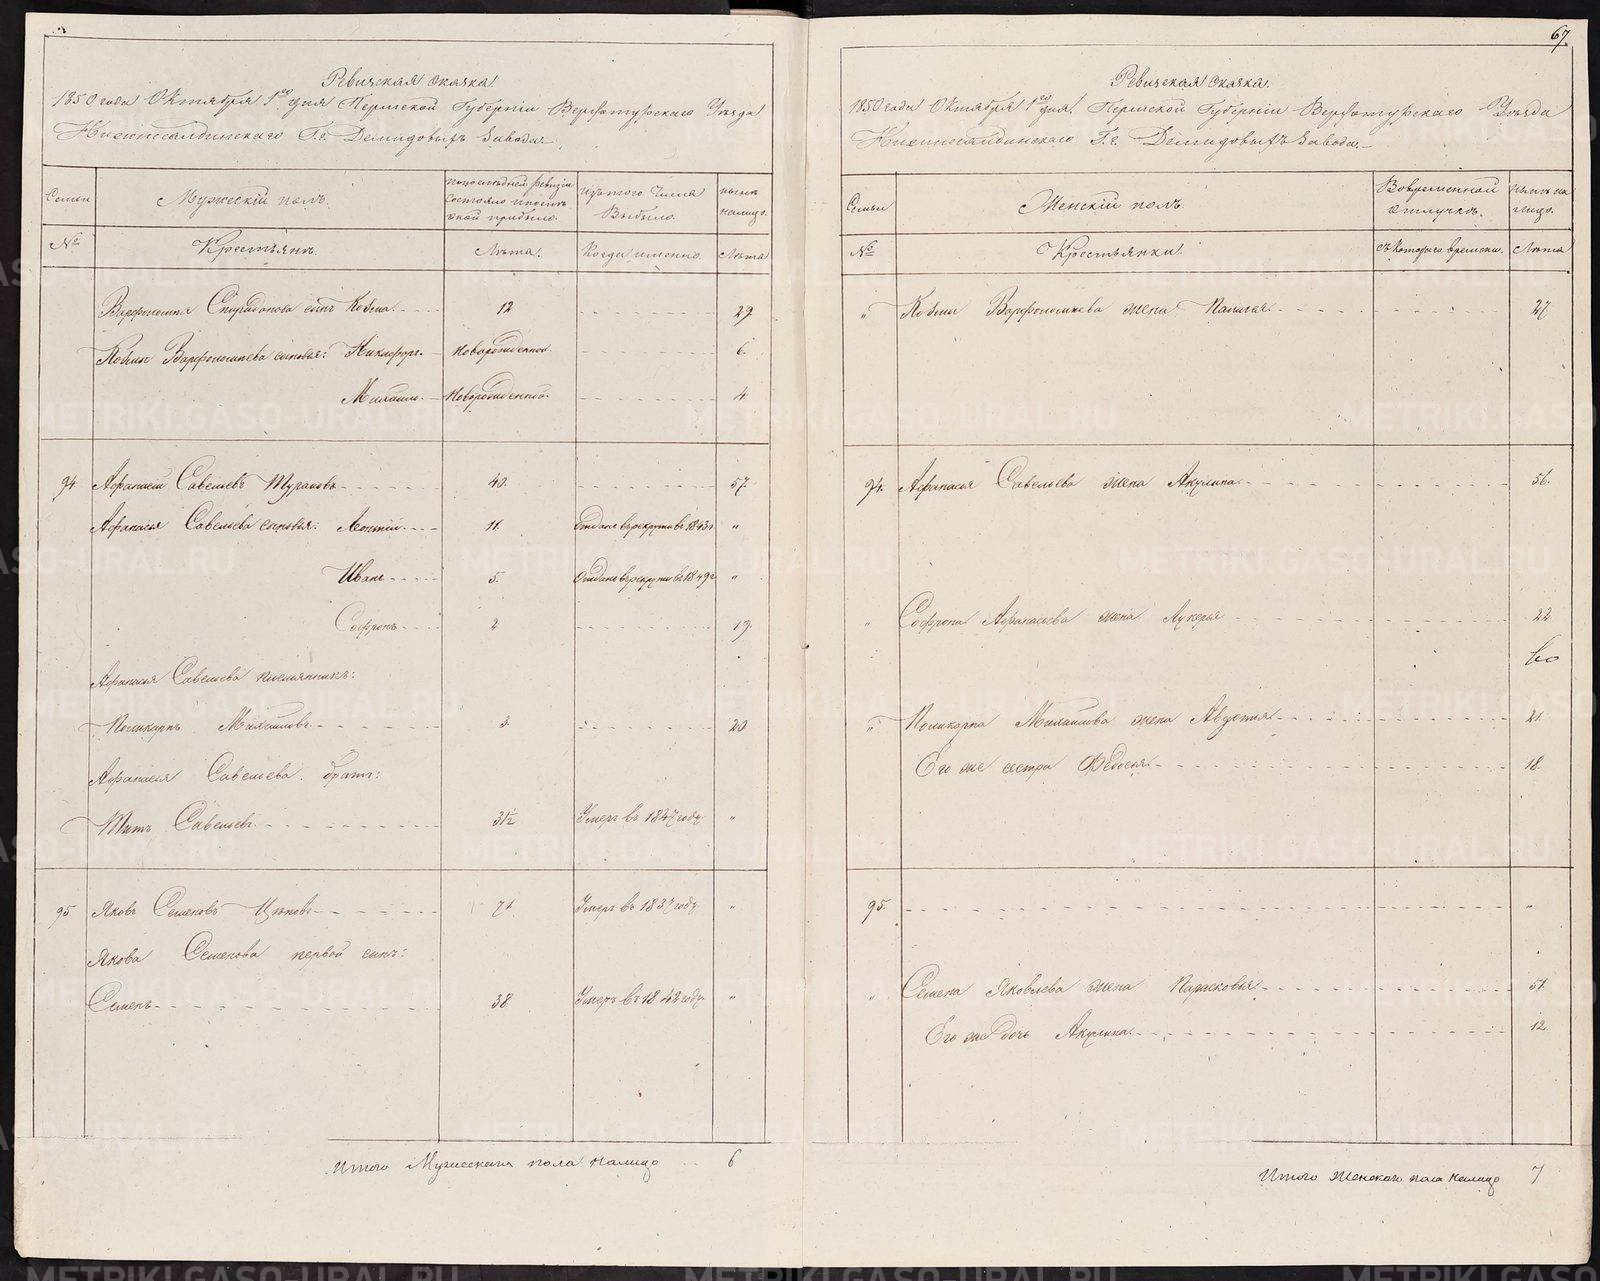 Ревизская сказка.
1850 года Октября 1го дня Пермской Губерніи Верхотурскаго Уѣзда
Нижнесалдинскаго Г.г. Демидовыхъ Завода.
Семьи
Мужескій полъ.
По последней ревизіи
состояло и после
оной прибыло.
Изъ того числа
Выбыло.
Нынѣ
налицо.
№
Крестьянъ.
Лѣта.
Когда именно.
Лѣта
Варфоломея Спиридонова сынъ Козма 12 29
Козмы Варфоломеева сыновья: Никифоръ. Новорожденной. 6.
Михайло. Новорожденной. 4
94 Афанасій Савельевъ 40. 57.
Афанасья Савельева сыновья: Леонтій 11. Отданъ в рекруты в 1843 г "
Иванъ 5. Отданъ в рекруты в 1849 г "
Софронъ 2 19.
Афанасья Савельева племянникъ:
Поликарпъ Михайловъ 3. 20
Афанасья Савельева братъ:
Титъ Савельевъ 31½ Умеръ въ 1847 году "
95. Яковъ Семеновъ 71. Умеръ въ 1837 году "
Якова Семенова первой сынъ:
Семенъ 38 Умеръ въ 1842 году "
Итого Мужескаго пола налицо 6
67.
Ревизская сказка.
1850 года Октября 1го дня. Пермской Губерніи Верхотурскаго Уѣзда
Нижнесалдинскаго Г.г. Демидовыхъ Завода.
Семьи
Женскій полъ.
Во временной
отлучкѣ.
Нынѣ на
лицо.
№
Крестьянки.
Съ котораго времени.
Лѣта
" Козмы Варфоломеева жена Палагея 27
94. Афанасья Савельева жена Акулина 56.
" Софрона Афанасьева жена Лукерья 22
" Поликарпа Михайлова жена Авдотья 21.
Его же сестра Федосья 18.
95. "
" Семена Яковлева жена Парасковья 51.
Его же дочь Акулина 12.
Итого Женскаго пола налицо 7
METRIKI.GASO-URAL.RU